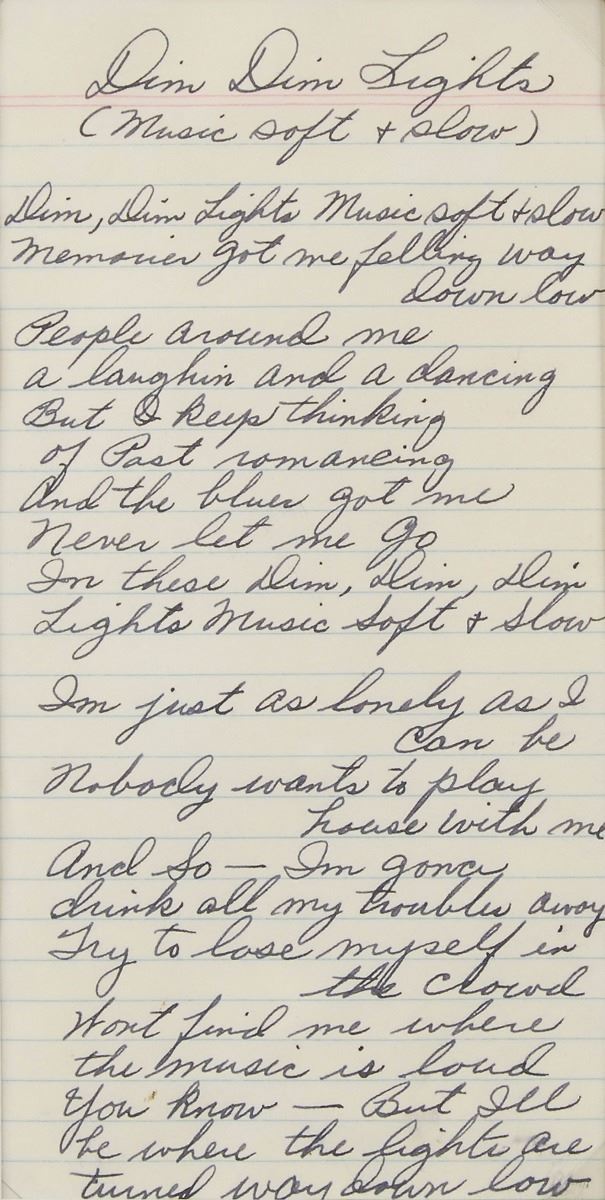 Dim Dim Lights
(Music soft + slow)
Dim, Dim Lights Music soft + slow
Memories got me felling way
down low
People around me
a laughin and a dancing
But I keep thinking
of Past romancing
And the blues got me
Never let me go
In these Dim, Dim, Dim
Lights Music Soft + Slow
Im just as lonely as I
can be
Nobody wants to play
house with me
And So — Im gona
drink all my troubles away
Try to lose myself in
the crowd
Wont find me where
the music is loud
You know — But Ill
be where the lights are
turned way down low